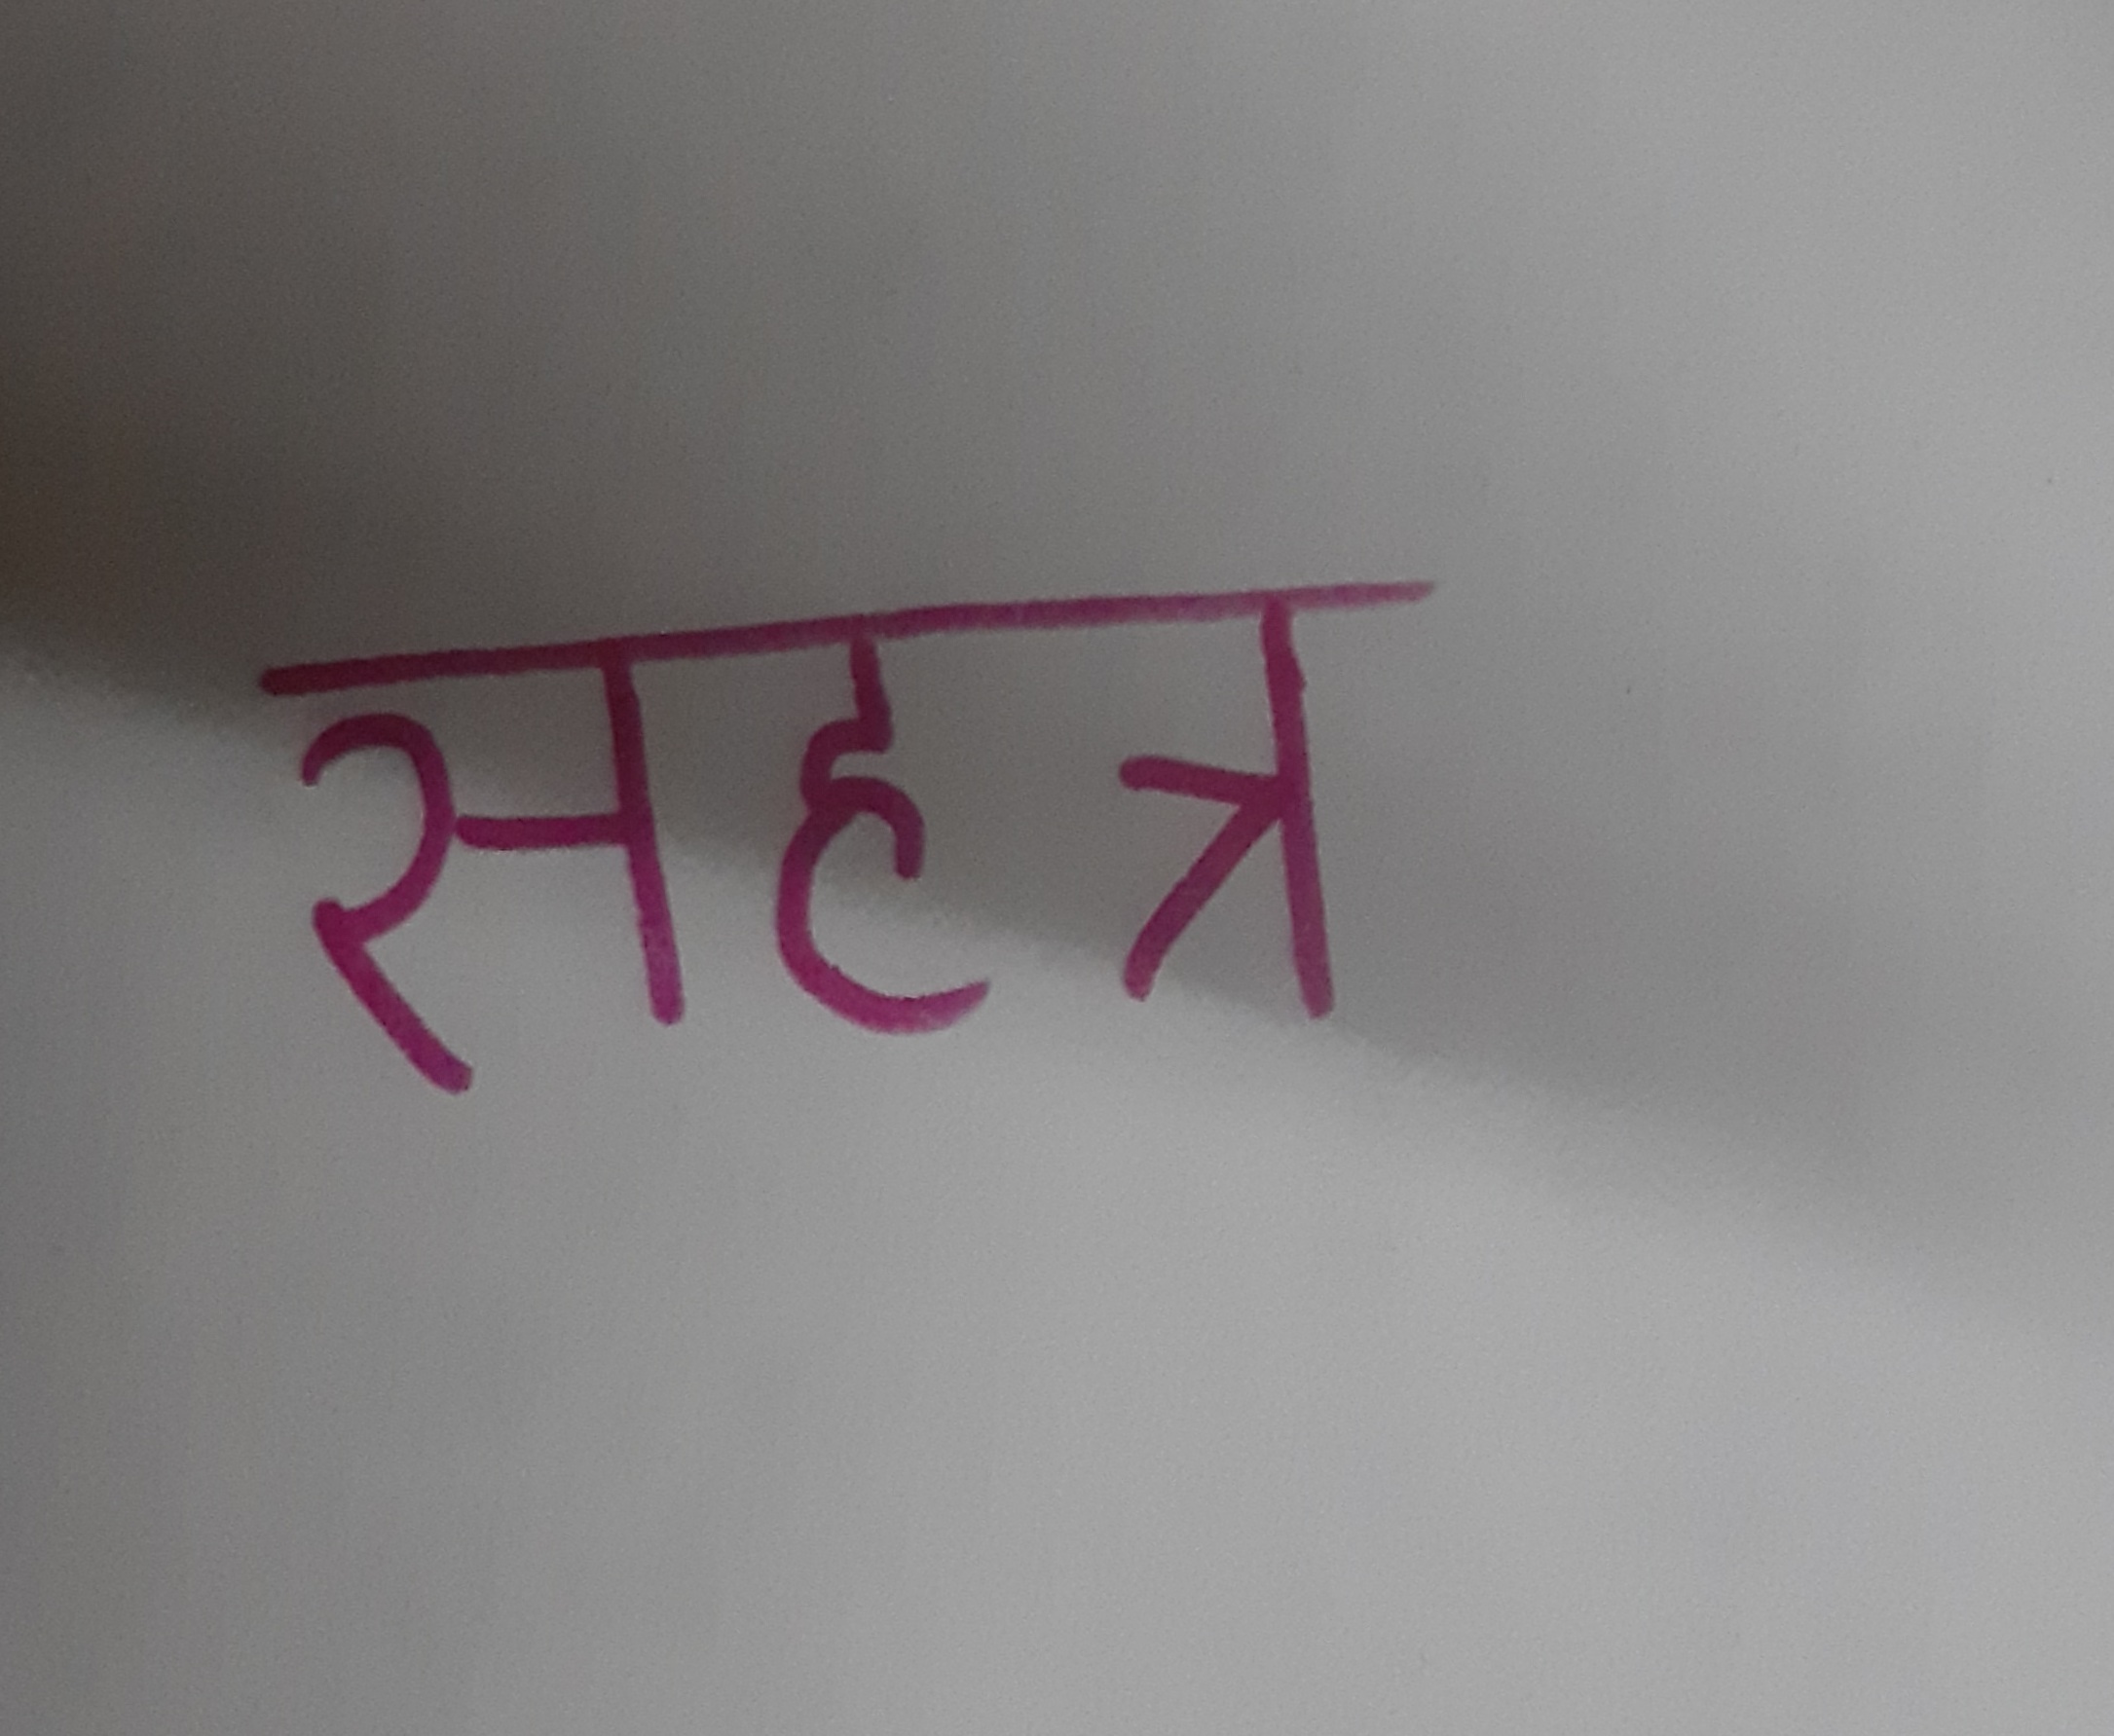 सहत्र